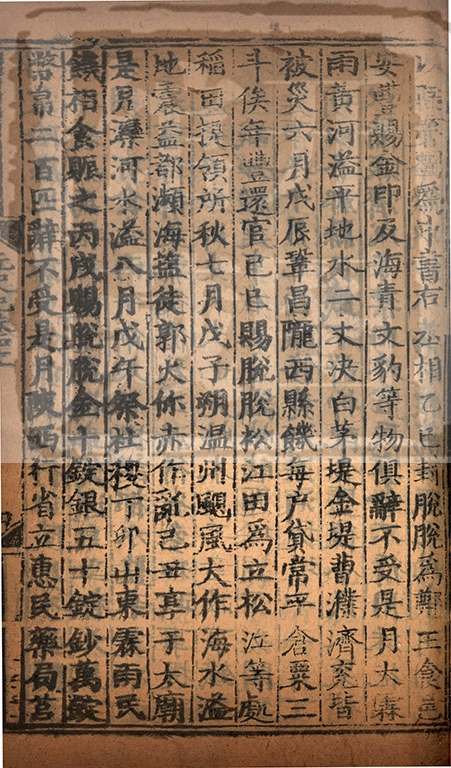 爲中書右丞相乙巳封脫脫爲鄭王食邑
安豐賜金印及海青文豹等物俱辭不受是月大霖
雨黃河溢平地水二丈決白茅堤金堤曹濮濟兗皆
被災六月戊辰鞏昌隴西縣饑每戶貸常平倉粟三
斗俟年豐還官己巳賜脫脫松江田爲立松江等處
稻田提領所秋七月戊子朔温州颶風大作海水溢
地震益都瀕海鹽徒郭火你赤作亂己丑享于太廟
是月灤河水溢八月戊午祭社稷丁卯山東霖雨民
饑相食賑之丙戌賜脫脫金十錠銀五十錠鈔萬錠
幣帛二百匹辭不受是月陝西行省立惠民藥局莒